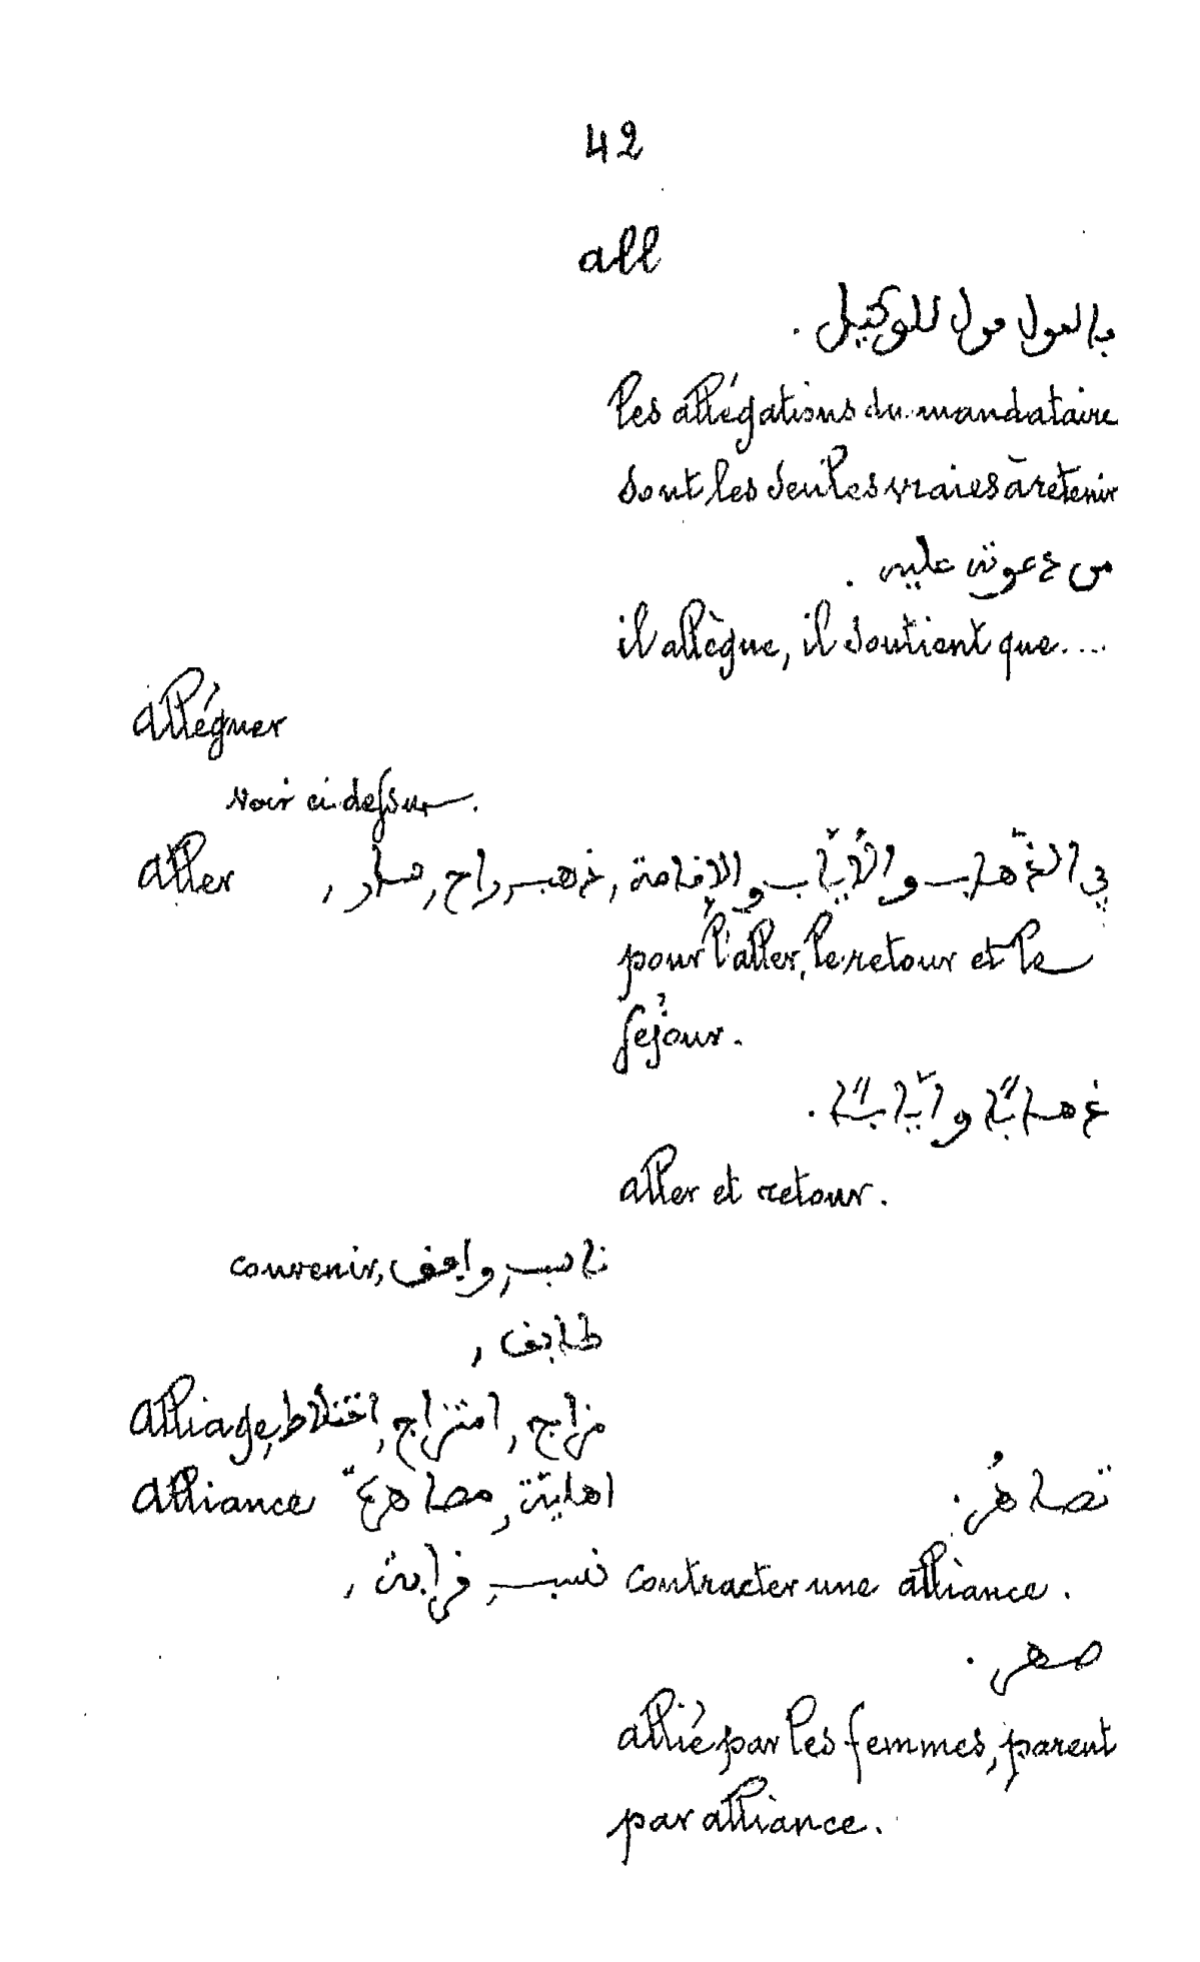 42
all
فالقول قول للوكيل .
les allégations du mandataire
sont les seules vraies à retenir
من دعوته عليه .
il allègue, il soutient que....
alléguer
voir ci-dessus.
aller في الذّهاب والأيّاب والإقامة , ذهب , راح , سار ,
pour l'aller, le retour et le
séjour.
ذهابًا وايّابًا .
aller et retour.
convenir, ناسب , وافق
طابق ,
alliage, مزاج , امتزاج , اختلاط
alliance اهلية , مصاهرة تصاهُر .
نسب , قرابة , contracter une alliance.
صهر .
allié par les femmes, parent
par alliance.